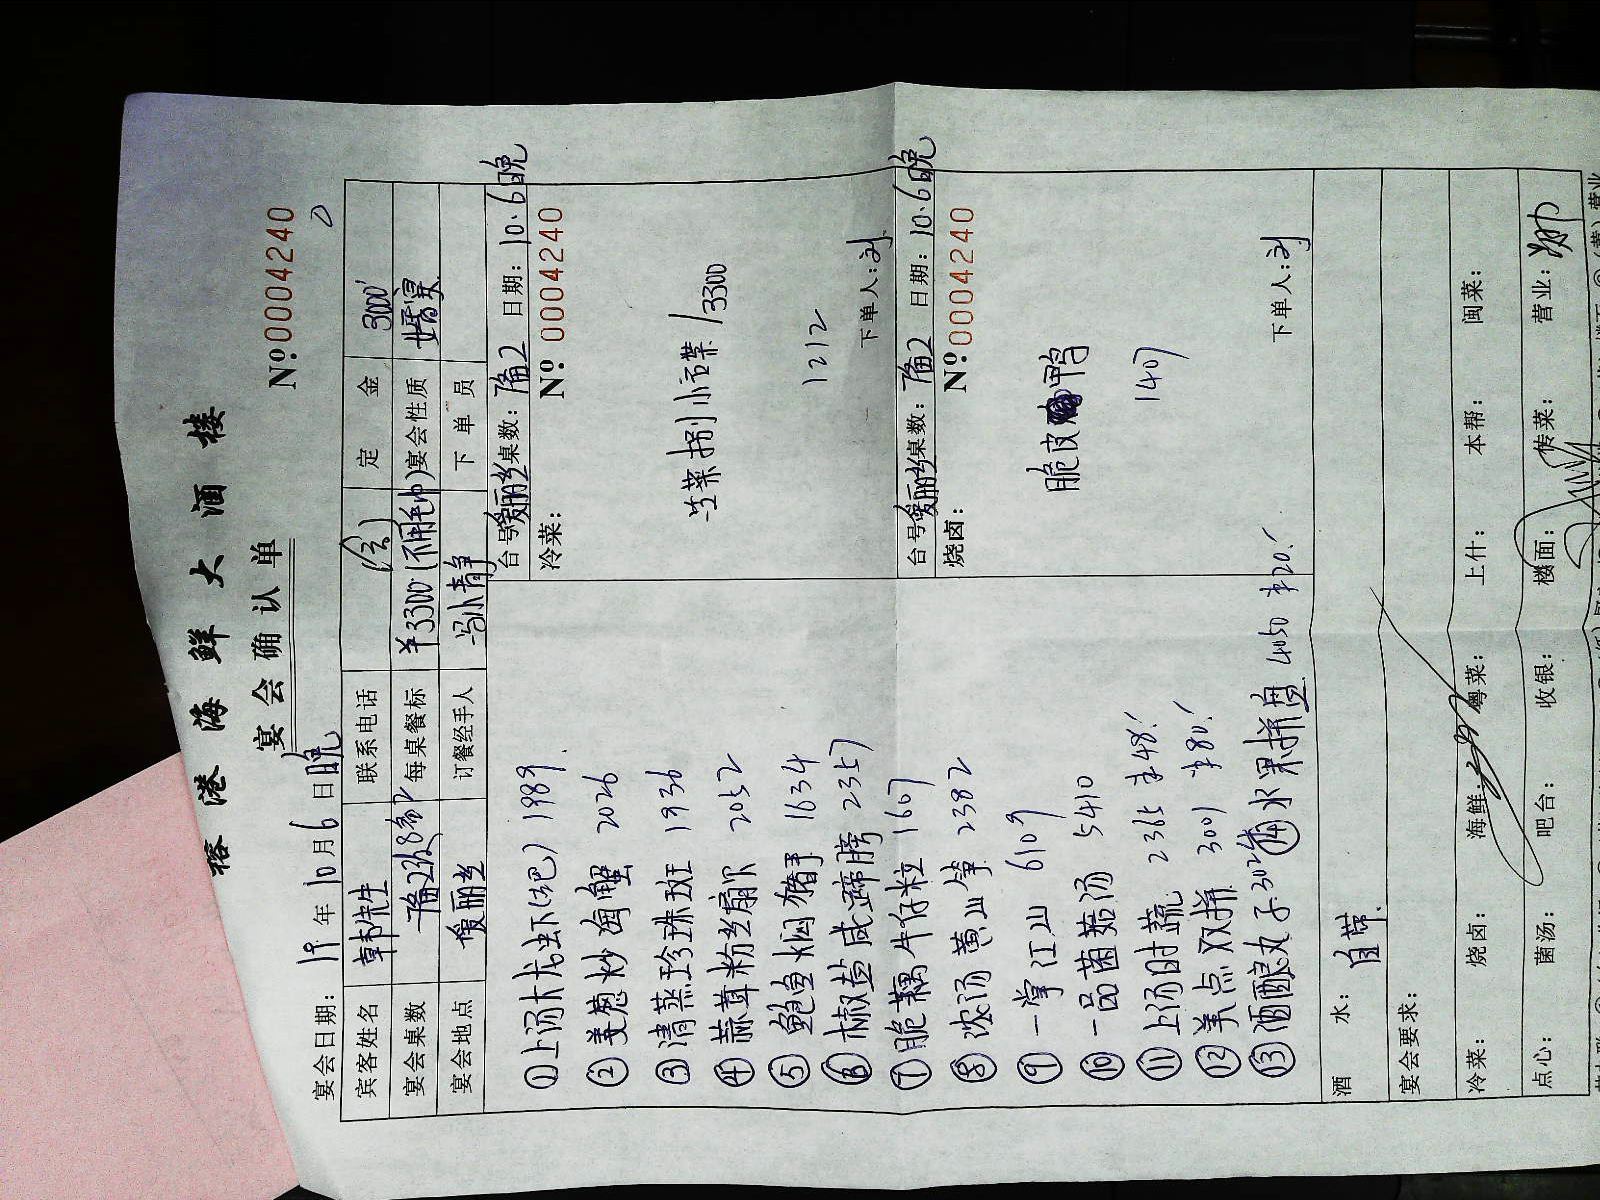 榕港海鲜大酒楼
宴会确认单
No.0004240
宴会日期: 19年10月6日晚
宾客姓名 韩先生 联系电话 定金 3000
宴会桌数 每桌餐标 ¥3300 (不用毛巾) 宴会性质 婚宴
宴会地点 爱丽丝 订餐经手人 冯小静 下单员
①上汤大龙虾(巴) 1989
②姜葱炒海蟹 2026
③清蒸珍珠斑 1936
④蒜茸粉丝扇贝 2052
⑤鲍鱼焖猪手 1634
⑥椒盐咸蹄膀 2357
⑦脆藕牛仔粒 1607
⑧浓汤黄山笋 2382
⑨一掌江山 6109
⑩一品菌菇汤 5410
⑪上汤时蔬 2365 ¥48
⑫美点双拼 3001 ¥80
⑬酒酿丸子 302 ⑭水果拼盘 4050 ¥20
台号:爱丽丝 桌数: 日期: 10.6晚
冷菜: No 0004240
捌小碟/3300
1212
下单人:刘
台号:爱丽丝 桌数: 日期: 10.6晚
烧卤: No.0004240
脆皮鸭
1407
下单人:刘
酒水: 自带
宴会要求:
冷菜: 烧卤: 海鲜: 粤菜: 上什: 本帮: 闽菜:
点心: 菌汤: 吧台: 收银: 楼面: 传菜: 营业: